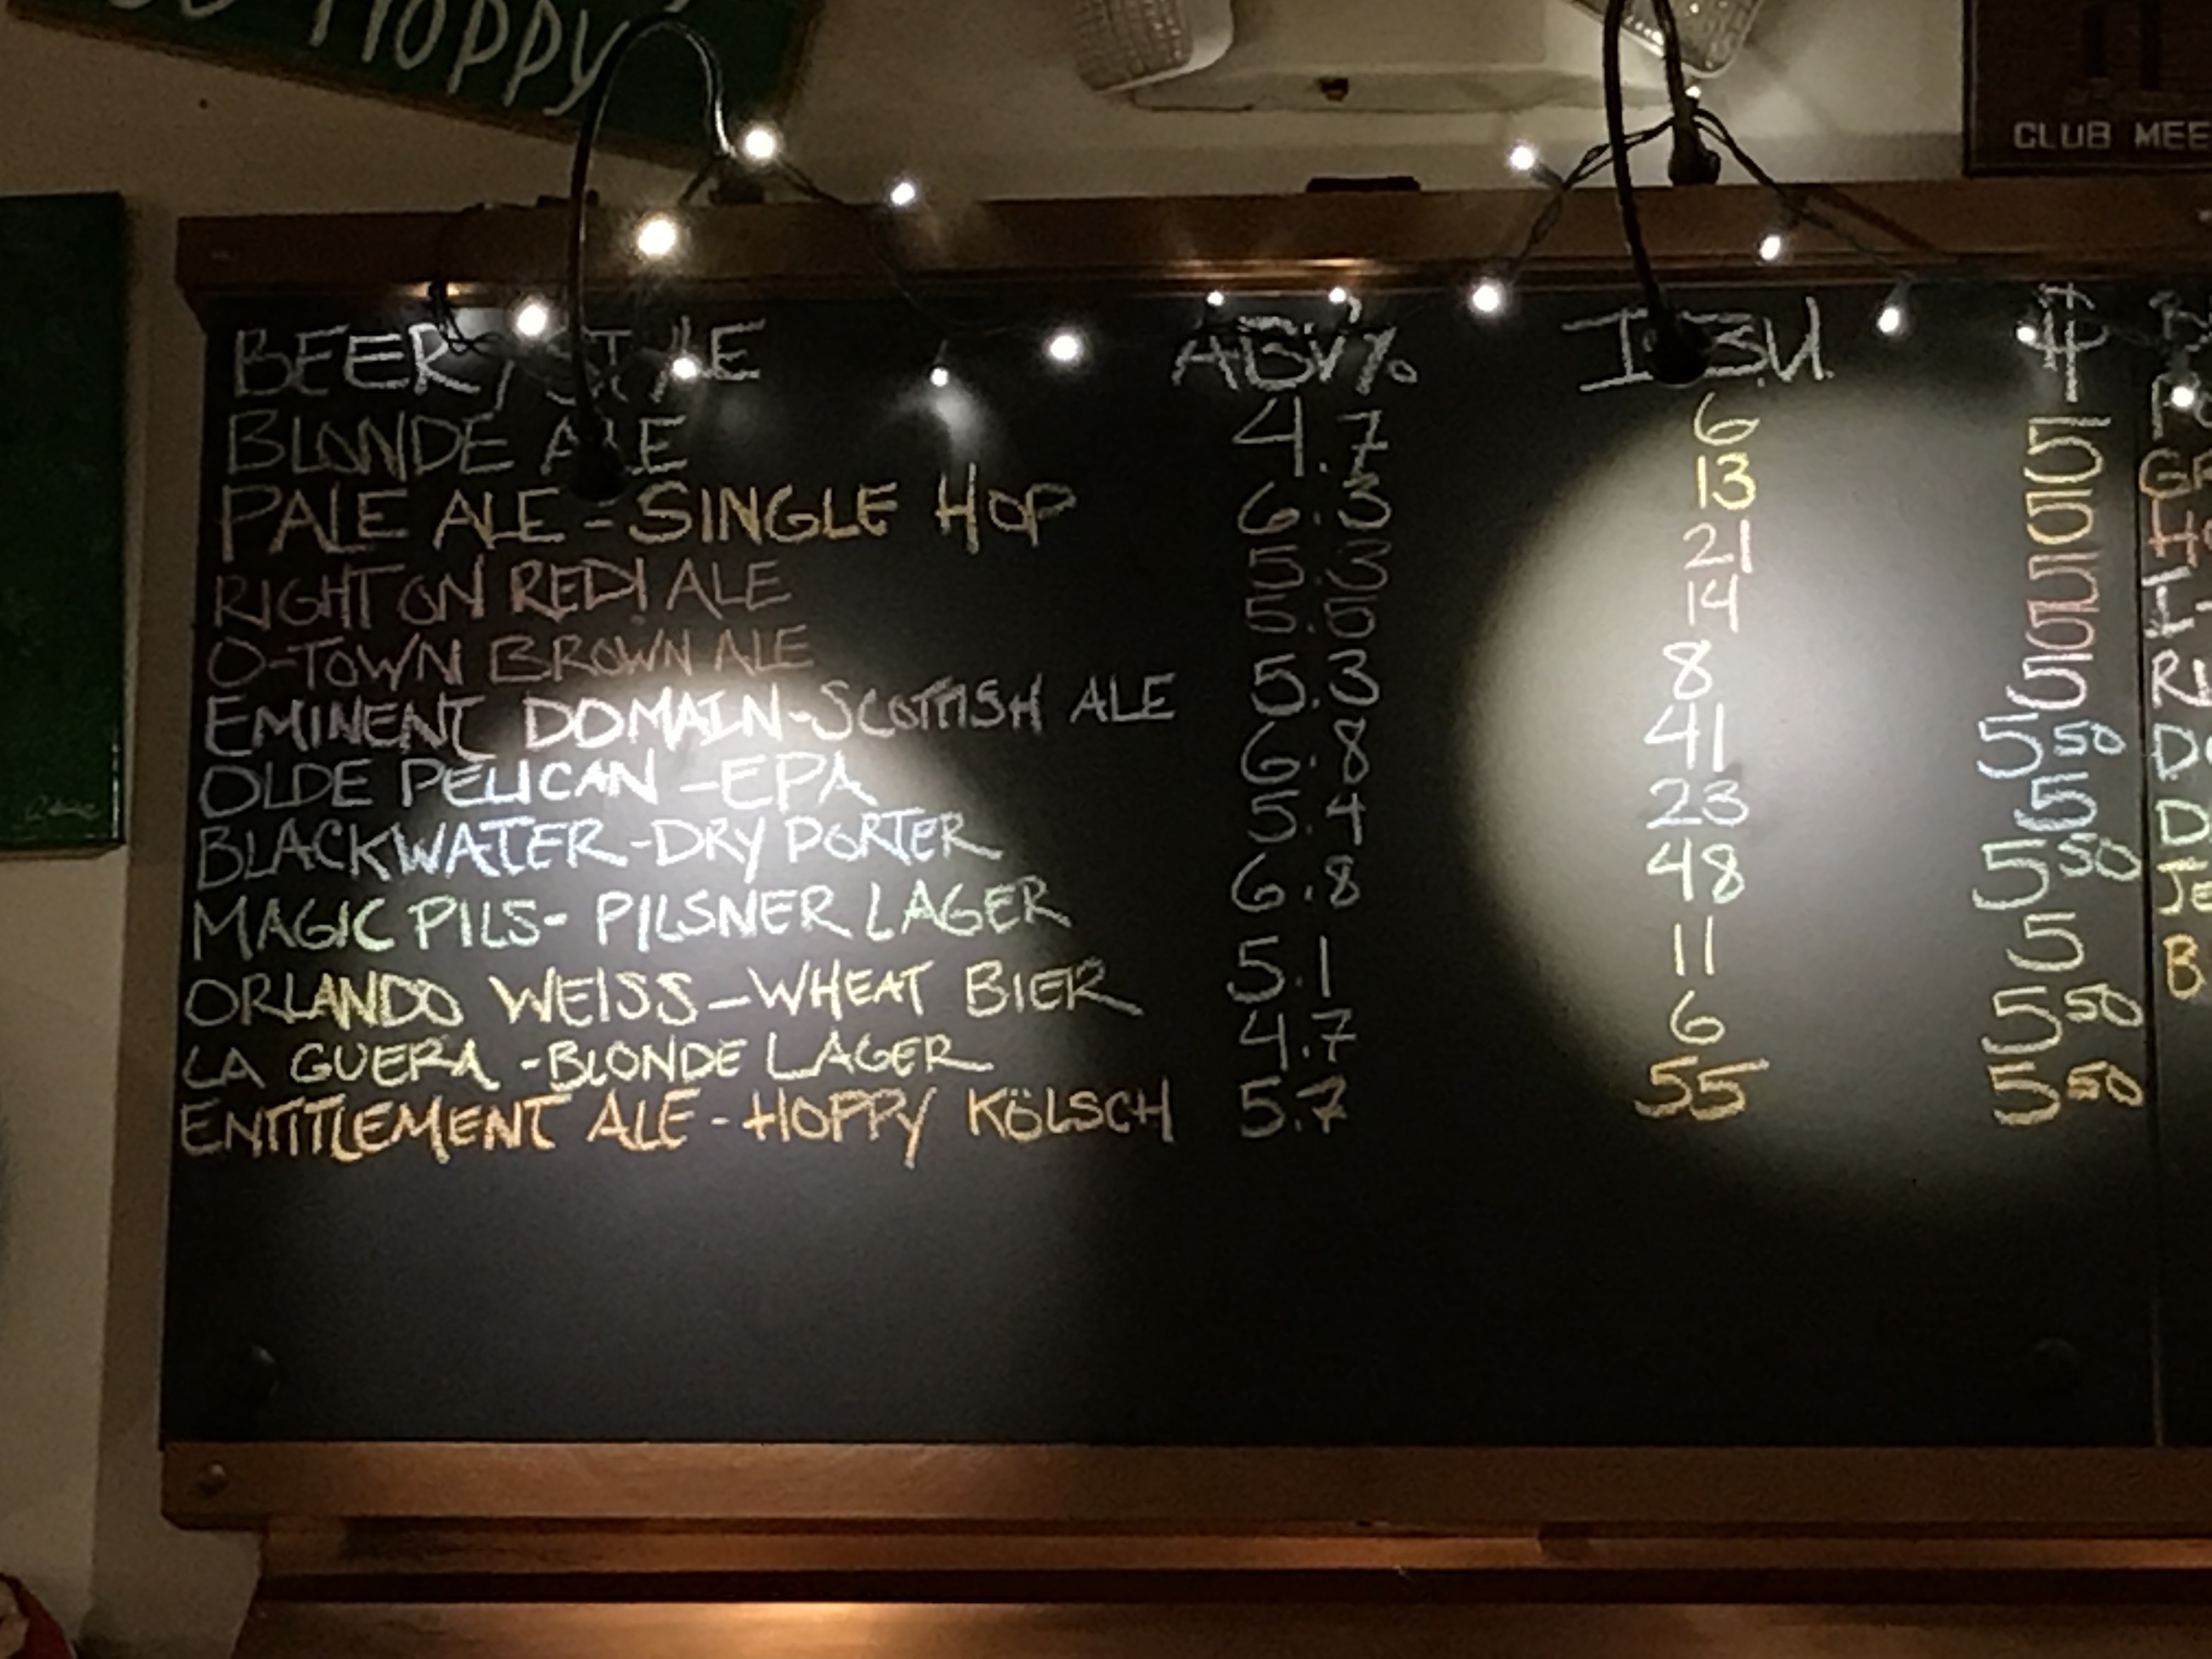 HOPPY
CLUB MEE
BEER / STYLE ABV% IBU $
BLONDE ALE 4.7 6 5
PALE ALE - SINGLE HOP 6.3 13 5
RIGHT ON RED! ALE 5.3 21 5
O-TOWN BROWN ALE 14 5
EMINENT DOMAIN - SCOTTISH ALE 5.3 8 5
OLDE PELICAN - EPA 6.8 41 5 50
BLACKWATER - DRY PORTER 5.4 23 5
MAGIC PILS - PILSNER LAGER 6.8 48 5 50
ORLANDO WEISS - WHEAT BIER 5.1 11 5
LA GUERA - BLONDE LAGER 4.7 6 5 50
ENTITLEMENT ALE - HOPPY KÖLSCH 5.7 55 5 50